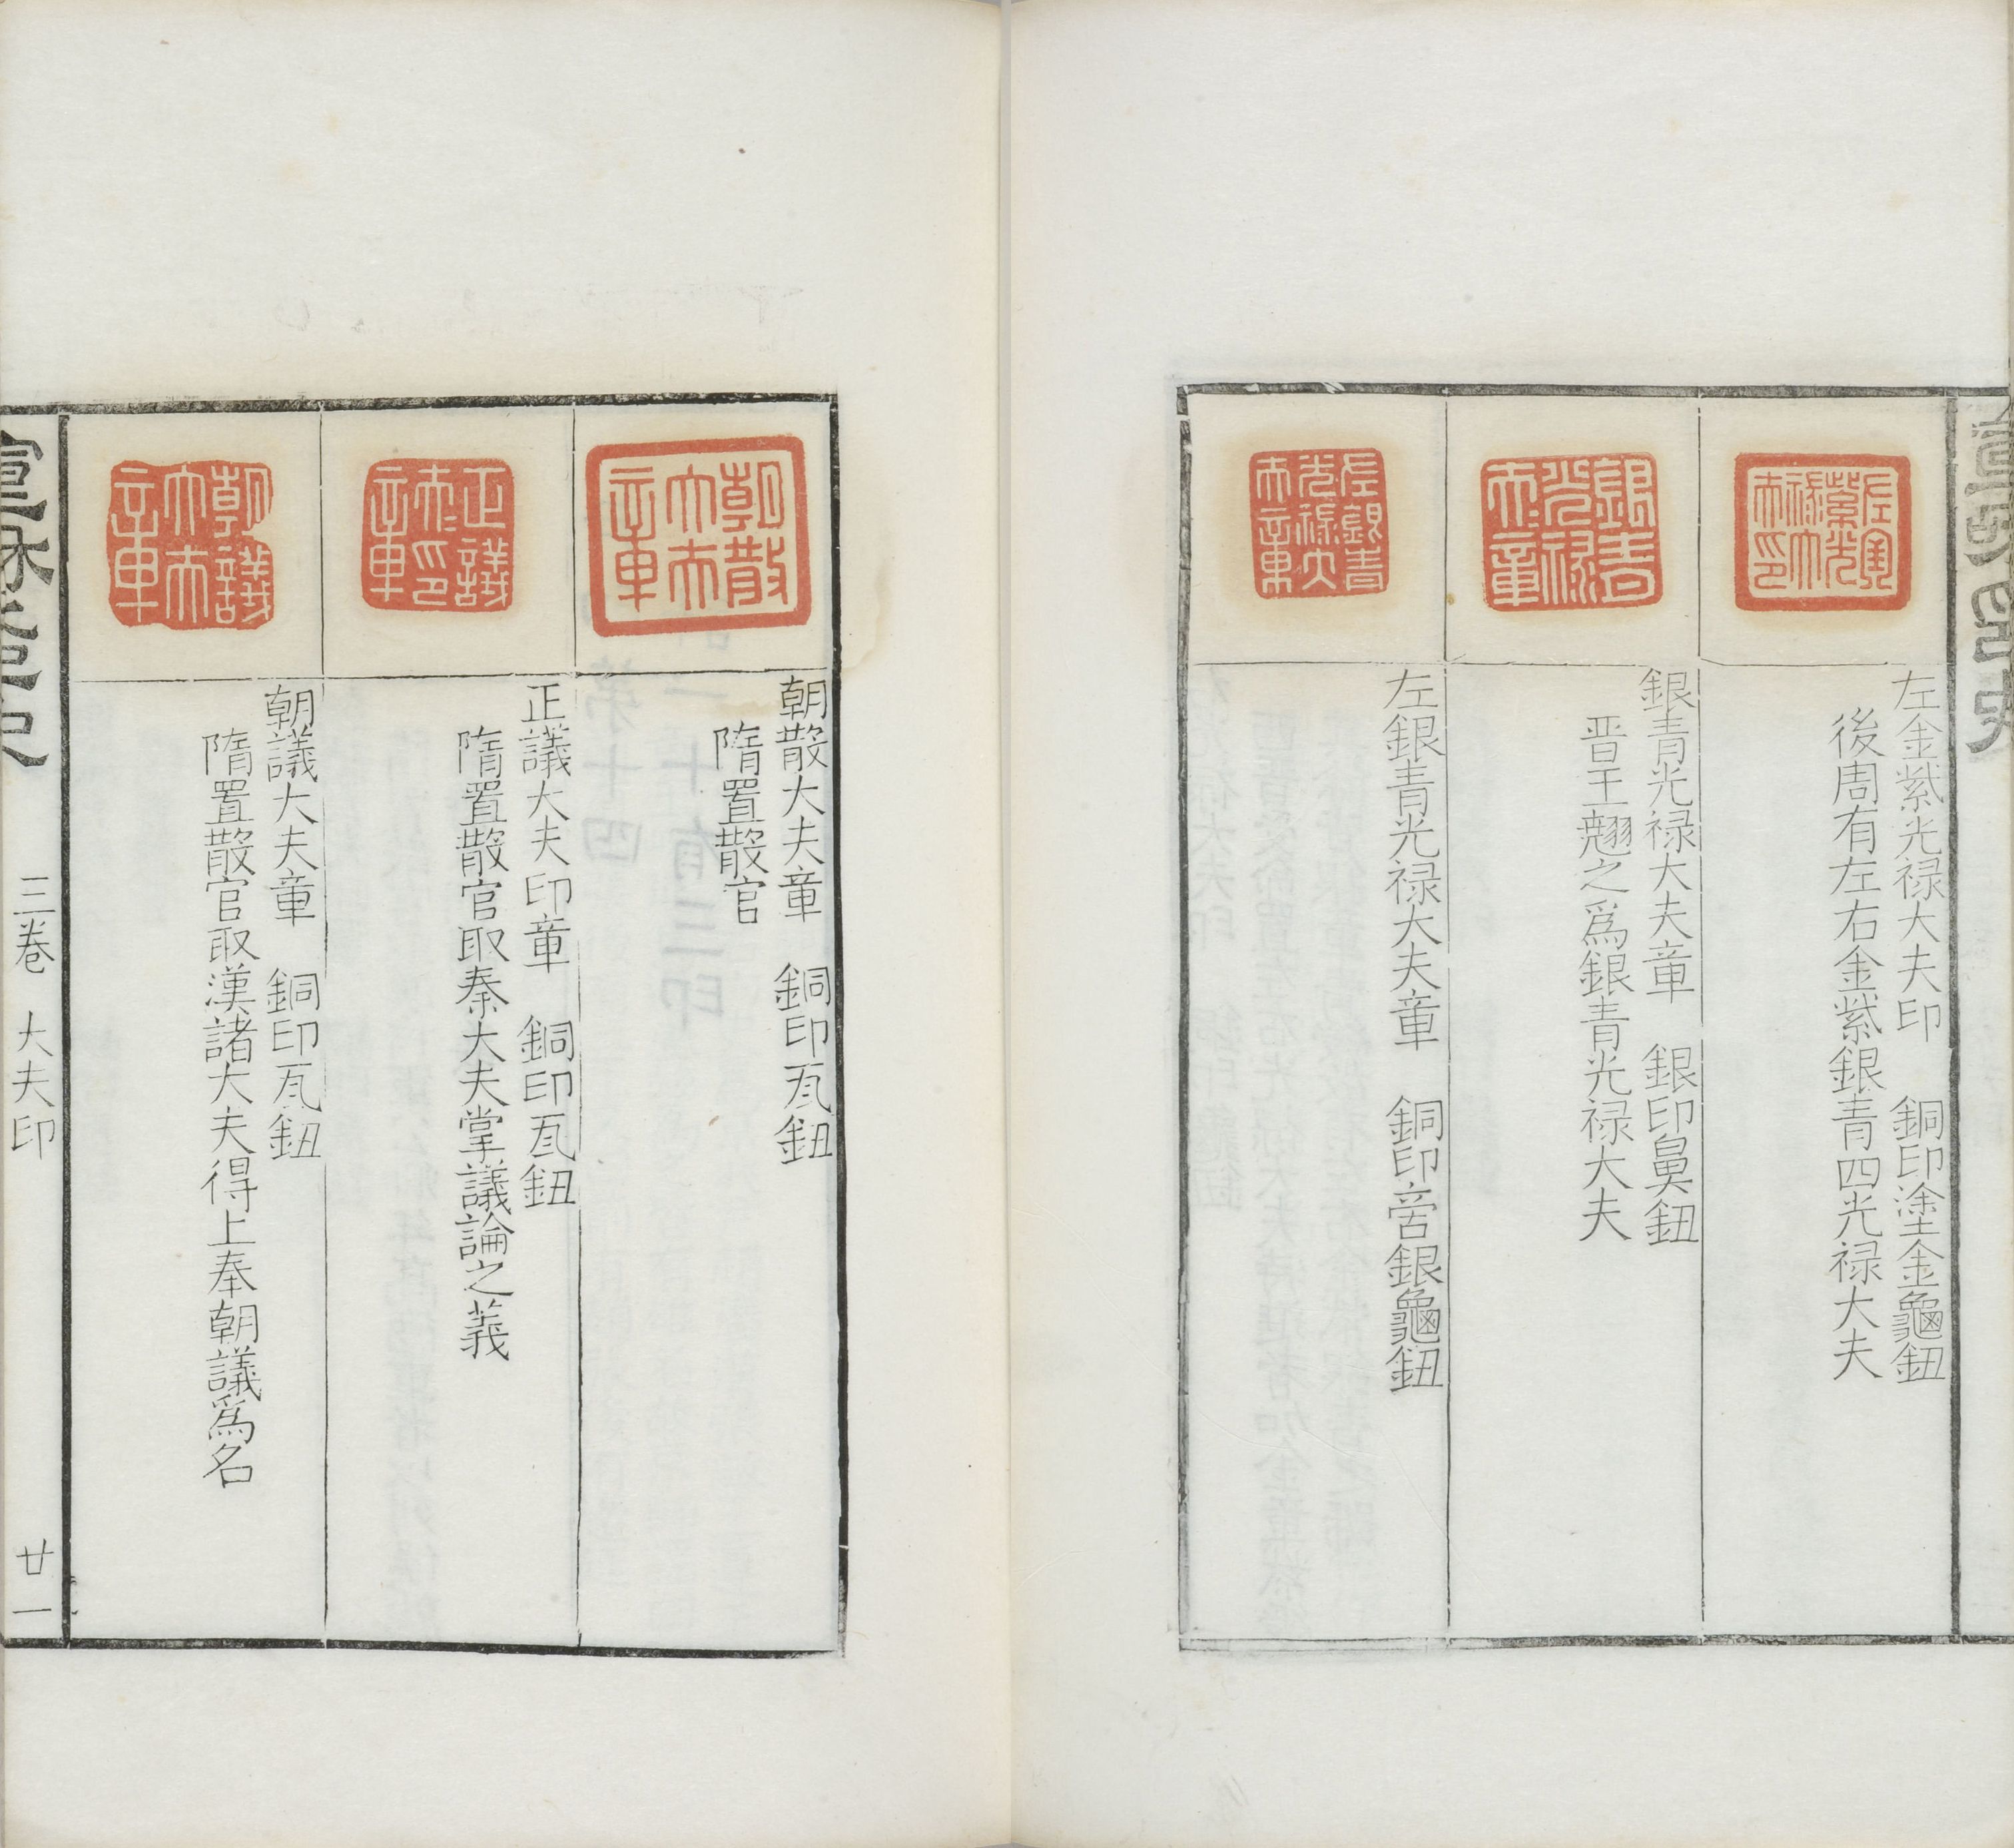 左金紫光禄大夫印　銅印塗金龜鈕
後周有左右金紫銀青四光禄大夫
銀青光禄大夫章　銀印鼻鈕
晋王翹之爲銀青光禄大夫
左銀青光禄大夫章　銅印銀龜鈕
朝散大夫章　銅印瓦鈕
隋置散官
正議大夫印章　銅印瓦鈕
隋置散官取秦大夫掌議論之義
朝議大夫章　銅印瓦鈕
隋置散官取漢諸大夫得上奉朝議爲名
三卷　大夫印
廿一